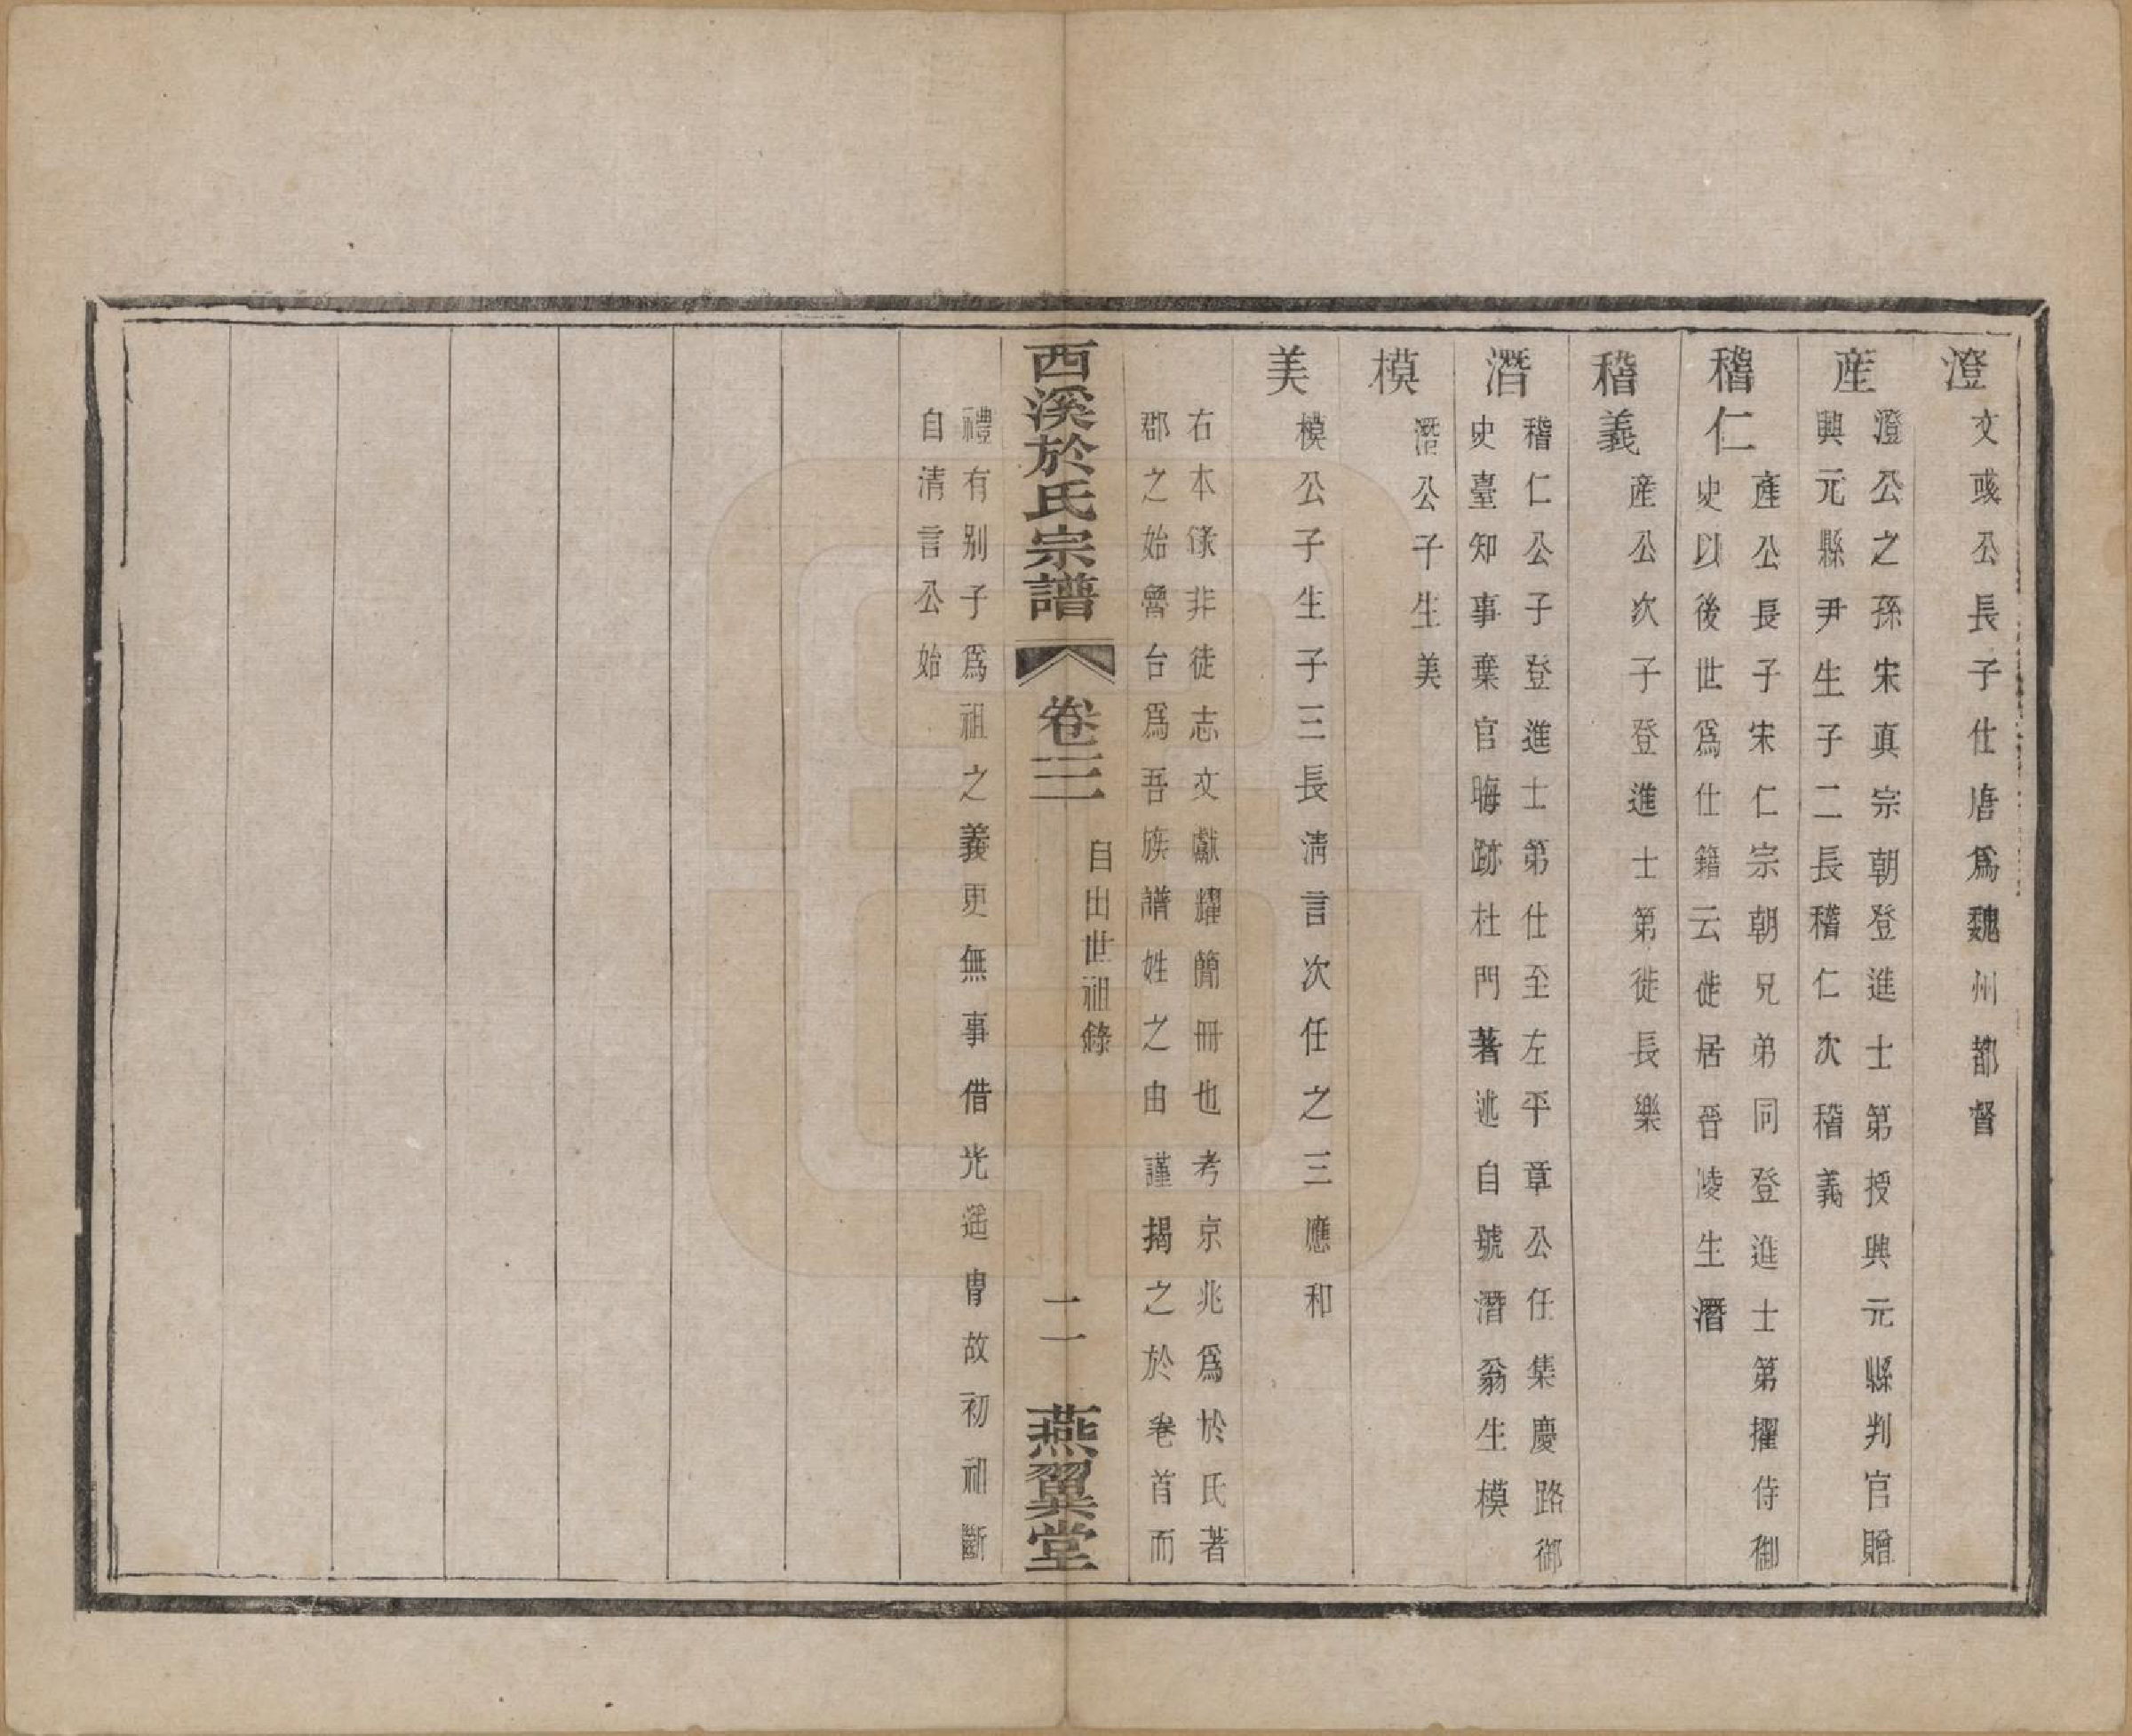 澄
文彧公長子仕唐爲魏州都督
産
澄公之孫宋真宗朝登進士第授興元縣判官贈
興元縣尹生子二長稽仁次稽義
稽仁
產公長子宋仁宗朝兄弟同登進士第擢侍御
史以後世爲仕籍云徙居晉陵生潛
稽義
産公次子登進士第徙長樂
潛
稽仁公子登進士第仕至左平章公任集慶路御
史臺知事棄官晦跡杜門著述自號潛翁生模
模
潛公子生美
美
模公子生子三長清言次任之三應和
右本錄非徒志文獻耀簡冊也考京兆爲於氏著
郡之始魯台爲吾族譜姓之由謹揭之於卷首而
西溪於氏宗譜
卷三
自出世祖錄
二
燕翼堂
禮有别子爲祖之義更無事借光遥胄故初祖斷
自清言公始